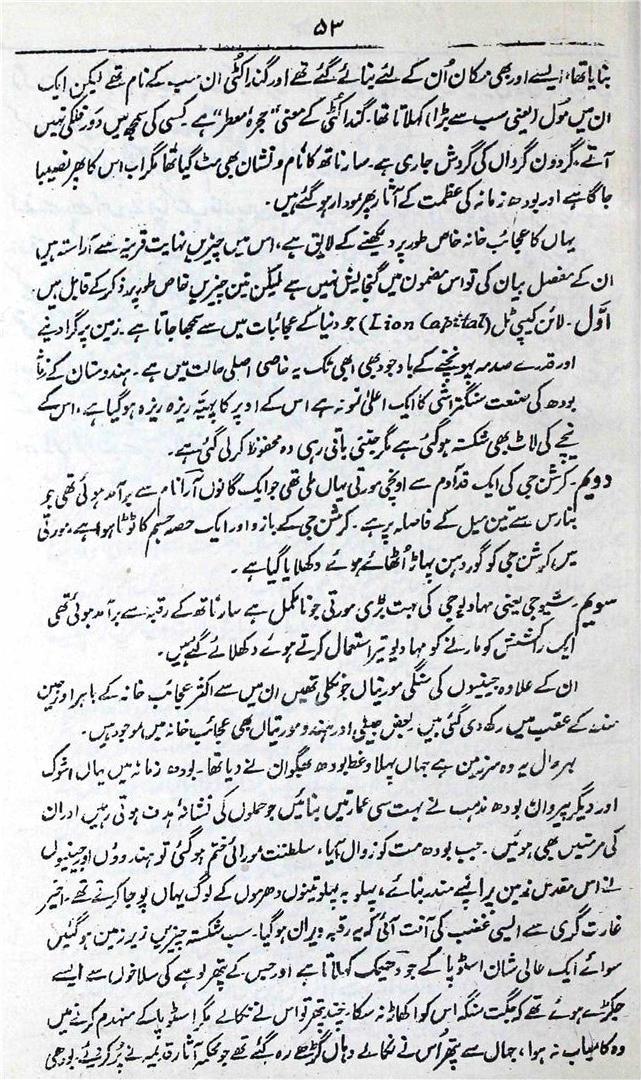 ۵۳
بنایا تھا، ایسے اور بھی مکان اُن کے لئے بنائے گئے تھے اور گندا کٹی ان سب کے نام تھے لیکن ایک
ان میں مول (یعنی سب سے بڑا) کہلاتا تھا۔ گندا کٹی کے معنی "حجرۂ معطر" ہے کسی کی سمجھ میں دَورِ فلکی نہیں
آتے۔ گردون گرداں کی گردش جاری ہے۔ سارناتھ کا نام و نشان بھی مٹ گیا تھا مگر اب اس کا پھر نصیبا
جاگا ہے اور بودھ زمانہ کی عظمت کے آثار پھر نمودار ہو گئے ہیں۔
یہاں کا عجائب خانہ خاص طور پر دیکھنے کے لایق ہے، اس میں چیزیں نہایت قرینہ سے آراستہ ہیں
ان کے مفصل بیان کی تو اس مضمون میں گنجایش نہیں ہے لیکن تین چیزیں خاص طور پر ذکر کے قابل ہیں۔
اوّل۔ لائن کیپی ٹل (Lion Capital) جو دنیا کے عجائبات میں سے سمجھا جاتا ہے۔ زمین پر گرا دینے
اور قدرے صدمہ پہونچنے کے باوجود بھی ابھی تک یہ خاصی اصلی حالت میں ہے۔ ہندوستان کے زمانہ
بودھ کی صنعت سنگتراشی کا ایک اعلیٰ نمونہ ہے اس کے اوپر کا پہیّہ ریزہ ریزہ ہو گیا ہے، اس کے
نیچے کی لاٹ بھی شکستہ ہو گئی ہے مگر جتنی باقی رہی وہ محفوظ کر لی گئی ہے۔
دویم۔ کرشن جی کی ایک قدِ آدم سے اونچی مورتی یہاں ملی تھی جو ایک گانوں آرا نام سے برآمد ہوئی تھی جو
بنارس سے تین میل کے فاصلہ پر ہے۔ کرشن جی کے بازو اور ایک حصہ جسم کا ٹوٹا ہوا ہے، مورتی
میں کرشن جی کو گوردہن پہاڑ اُٹھائے ہوئے دکھلایا گیا ہے۔
سویم۔ شیو جی یعنی مہادیو جی کی بہت بڑی مورتی جو نامکمل ہے سارناتھ کے رقبہ سے برآمد ہوئی تھی
ایک راکشش کو مارنے کو مہادیو تیر استعمال کرتے ہوئے دکھلائے گئے ہیں۔
ان کے علاوہ جینیوں کی سنگی مورتیاں جو نکلی تھیں ان میں سے اکثر عجائب خانہ کے باہر اور جین
مندر کے عقب میں رکھ دی گئی ہیں۔ بعض جینی اور ہندو مورتیاں بھی عجائب خانہ میں موجود ہیں۔
بہرحال یہ وہ سرزمین ہے جہاں پہلا وعظ بودھ بھگوان نے دیا تھا۔ بودھ زمانہ میں یہاں اشوک
اور دیگر پیروانِ بودھ مذہب نے بہت سی عمارتیں بنائیں جو حملوں کی نشانۂ ہدف ہوتی رہیں اور ان
کی مرمتیں بھی ہوئیں۔ جب بودھ مت کو زوال ہوا، سلطنت موریا ختم ہو گئی تو ہندوؤں اور جینیوں
نے اس مقدس زمین پر اپنے مندر بنائے، پہلو بہ پہلو تینوں دھرموں کے لوگ یہاں پوجا کرتے تھے۔ اخیر
غارت گری سے ایسی غضب کی آفت آئی کہ یہ رقبہ ویران ہو گیا۔ سب شکستہ چیزیں زیر زمین ہو گئیں
سوائے ایک عالی شان اسٹوپا کے جو دھمیک کہلاتا ہے اور جس کے پتھر لوہے کی سلاخوں سے ایسے
جکڑے ہوئے تھے کہ جگت سنگھ اس کو اکھاڑ نہ سکا۔ چند پتھر تو اس نے نکالے مگر اسٹوپا کے منہدم کرنے میں
وہ کامیاب نہ ہوا، جہاں سے پتھر اُس نے نکالے وہاں گڑھے رہ گئے تھے جو محکمہ آثار قدیمہ نے پُر کر دیئے۔ بودھی